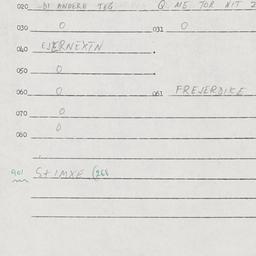 020 DI ANDERE TEG Q. ME TOR NIT
030 0 031 0
040 EJERNEXTN
050 0
060 0 061 FREJERDIKE
070 0
080 0
901 SIMXE (268